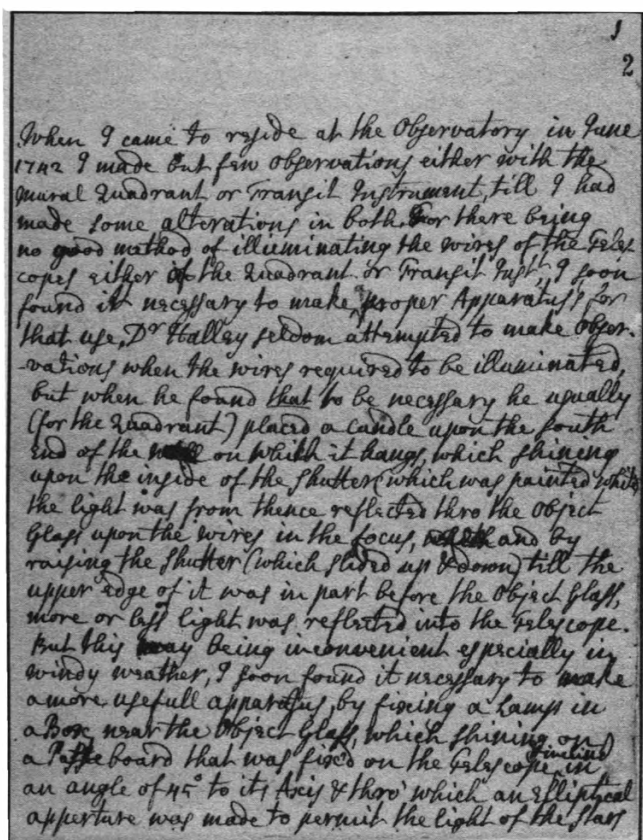 1
2
When I came to reside at the Observatory in June
1742 I made but few observations either with the
mural Quadrant or Transit Instrument, till I had
made some alterations in both. For there being
no good method of illuminating the wires of the Teles
copes either of the Quadrant or Transit Inst.t, I soon
found it necessary to make a proper Apparatus for
that use, Dr Halley seldom attempted to make obser-
-vations when the wires required to be illuminated,
but when he found that to be necessary he usually
(for the Quadrant) placed a candle upon the South
End of the on which it hangs, which shining
upon the inside of the Shutter (which was painted white
the light was from thence reflected thro the Object
Glass upon the wires in the focus, and by
raising the Shutter (which slided up & down) till the
upper edge of it was in part before the Object Glass,
more or less light was reflected into the Telescope.
But this way being inconvenient especially in
windy weather, I soon found it necessary to make
a more usefull apparatus, by fixing a Lamp in
a Box near the Object Glass, which shining on
a Paste board that was fixed on the Telescope inclined in
an angle of 45° to its Axis & thro' which an Elliptical
apperture was made to permit the light of the Stars